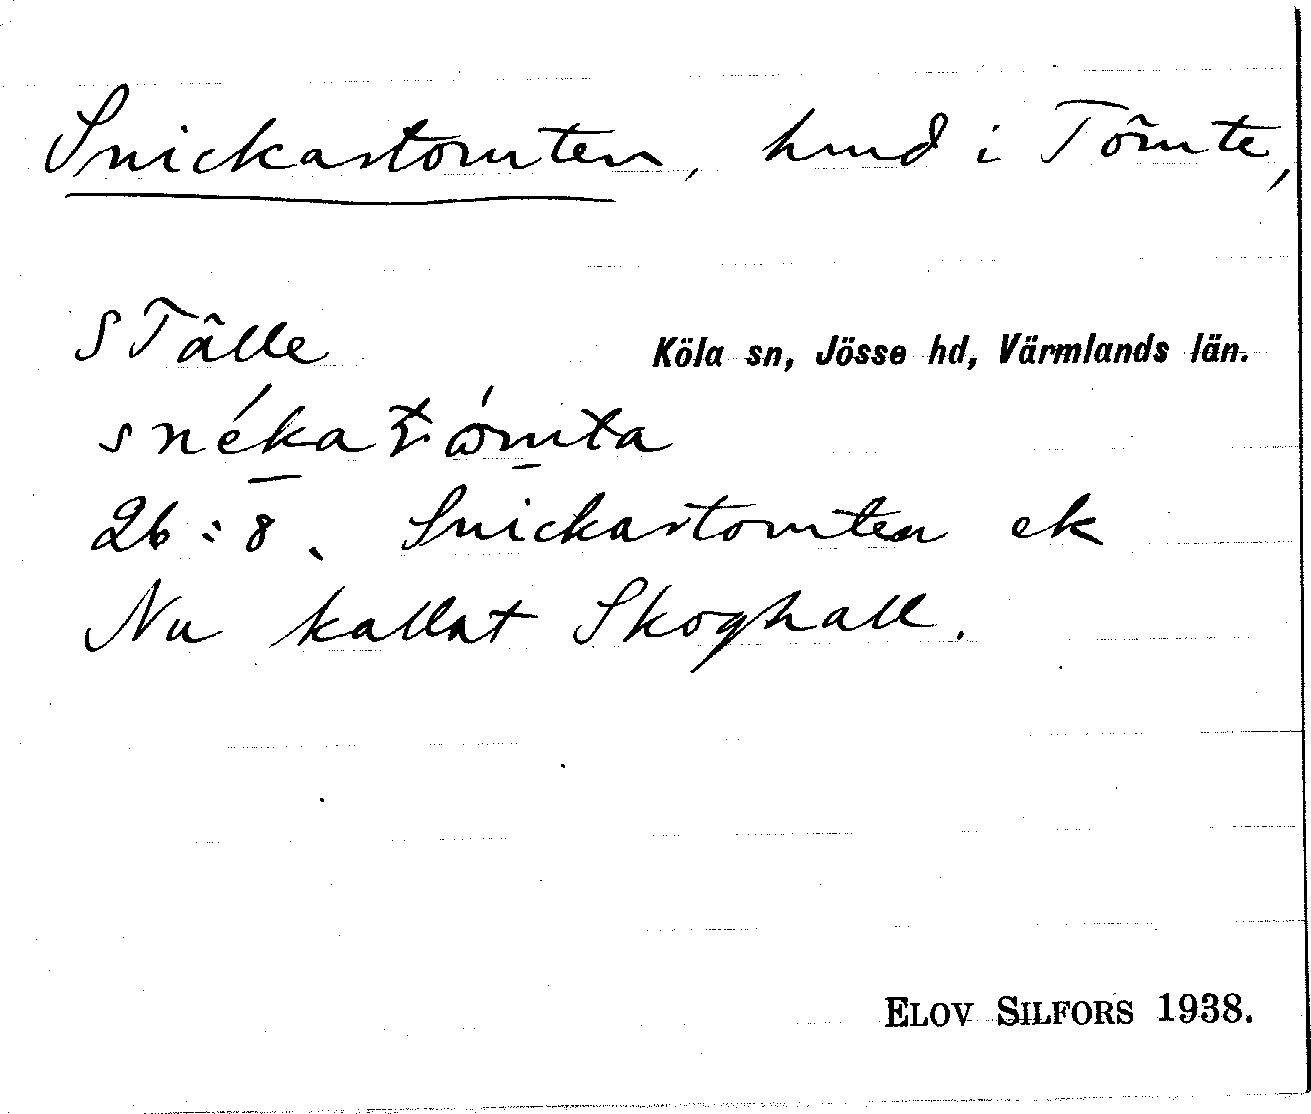 Snickartomten, hmd i Tömte,
S Tälle Köla sn, Jösse hd, Värmlands län.
26:8. Snickartomten ek
Nu kallat Skoghall.
ELOV SILFORS 1938.